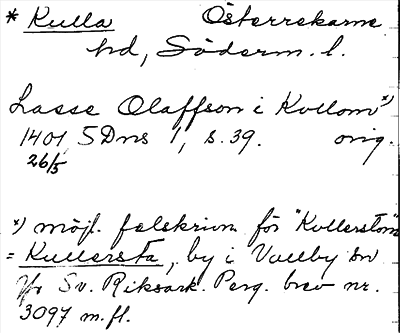 * Kulla Österrekarne
hd, Söderm. l.
Lasse Olaffson i Kullom x)
1401 SDns 1, s. 39. orig.
26/5
x) möjl. felskrivn för "Kullerstom"
= Kullersta, by i Vallby sn
jfr Sv. Riksark. Perg. brev nr.
3097 m.fl.